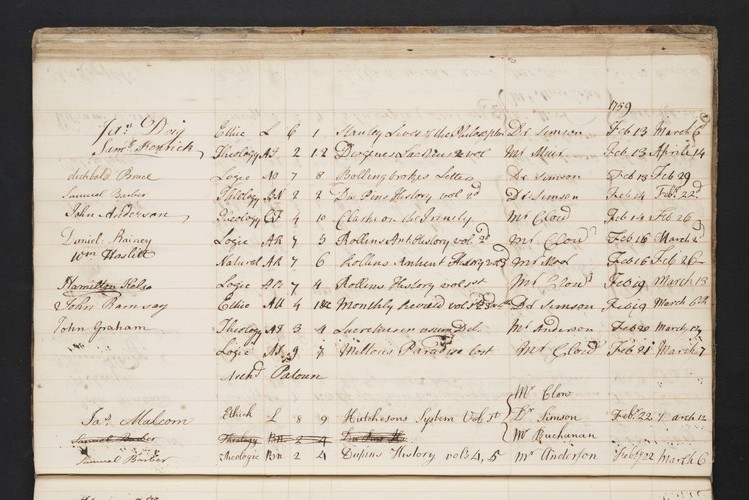 1759
Jas Doig Ethic L 6 1 Stanley Lives of the Philosophers Dr Simson Feb 13 March 6
Kenrick Theology 2 1 2 Diogenes Laertius 2 vol Mr Muir Feb 13 Aprile 14
Archbald Bruce Logic 7 8 Bollingbrokes Letters Dr Simson Feb 13 Feb 29
Samuel Barber Theology BN 2 2 Du Pins History vol 2d Dr Simson Feb 14 Feb. 22d
John Anderson Theology 4 10 Clark on the Trinity Mr Clow Feb 14 Feb 26
Daniel Rainey Logic AR 7 5 Rollins Ant History vol 2d Mr Clow Feb 16 March 2d
Wm Haslett Natural AR 7 6 Rollins Antient History Feb 16 Feb 26
Hamilton Kelso Logic 7 4 Rollins History vol 1st Mr Clow Feb 19 March 13
John Ramsay Ethic 4 Monthly Review Dr Simson Feb 19 March 6th
John Graham Theology 3 4 Mr Anderson Feb 20 March 12
Logic 9 7 Miltons Paradise lost Mr Clow Feb 21 March 7
Richd Patoun
Mr Clow
Jas Malcom Ethick L 8 9 Hutchesons System Vol 1st Dr Simson Feb. 22 March 12
Mr Buchanan
Samuel Barber Theology BN 2 4 Du Pins
Samuel Barber Theologic Bn 2 4 Dupins History vols 4, 5 Mr Anderson Feb 22 March 6